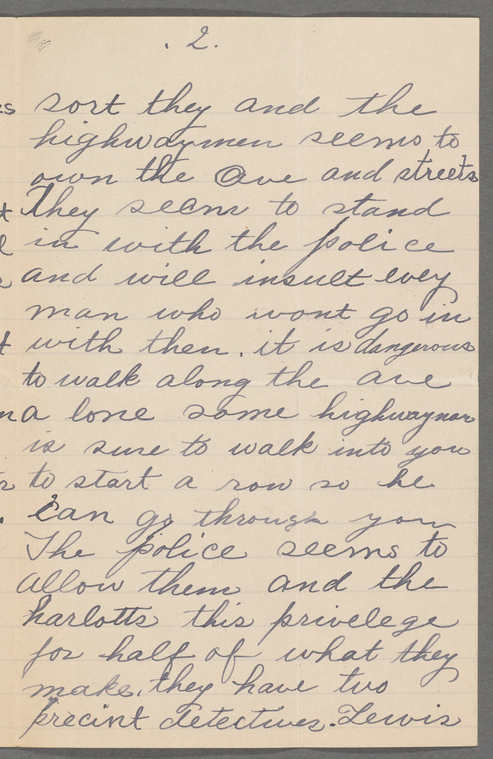 . 2.
sort they and the
highwaymen seems to
own the Ave and streets
They seem to stand
in with the police
and will insult evey
man who wont go in
with then. it is dangerous
to walk along the ave
a lone some highwayman
is sure to walk into you
to start a row so he
can go through you
The police seems to
allow them and the
harlotts this privelege
for half of what they
make. they have two
precint detectives. Lewis